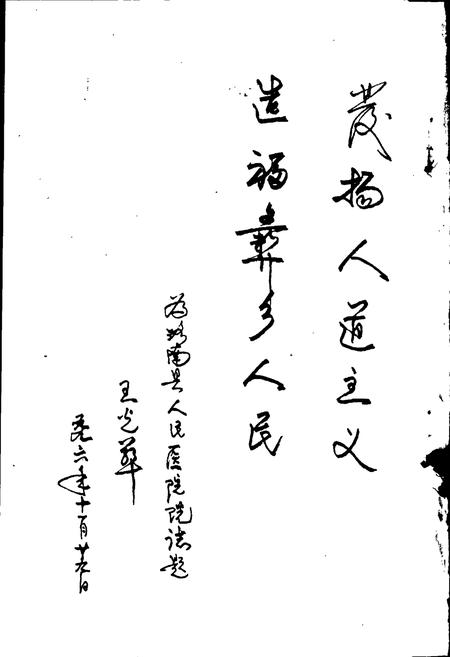 發扬人道主义
造福彝乡人民
为路南县人民医院院志题
王光华
六年十月廿九日